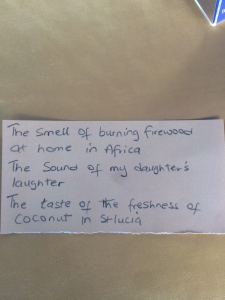 The smell of burning firewood
at home in Africa
The Sound of my daughter's
laughter
The taste of the freshness of
Coconut in St-lucia